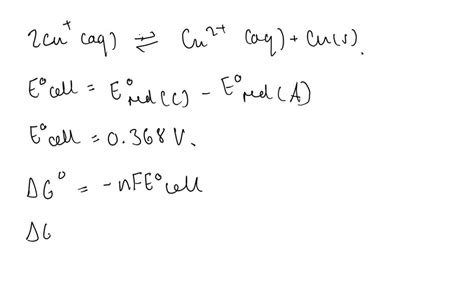 2Cu⁺ (aq) ⇌ Cu²⁺ (aq) + Cu(s).
E°cell = E°red(C) - E°red(A)
E°cell = 0.368 V.
ΔG° = -nFE°cell
ΔG